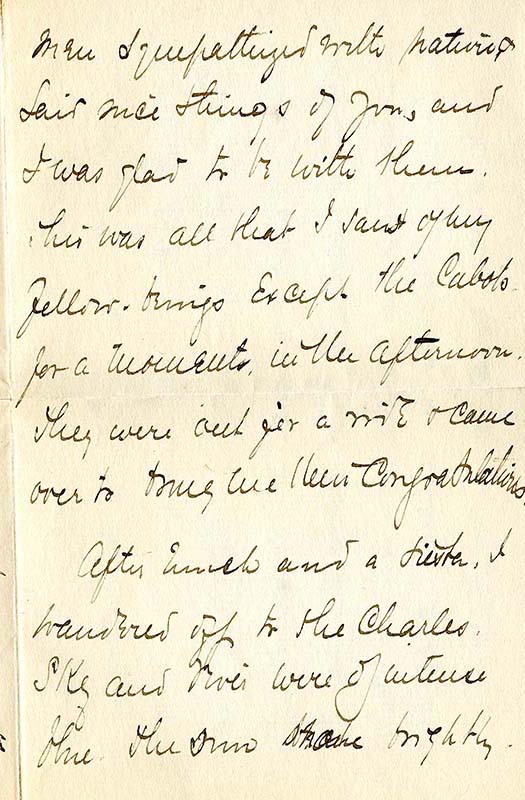 men sympathized with nature &
said nice things of you, and
I was glad to be with them.
This was all that I saw of my
fellow-beings except the Cabots
for a moment, in the afternoon.
They were out for a ride & came
over to bring me their Congratulations
After lunch and a siesta, I
wandered off to the Charles.
Sky and river were of intense
blue. The sun shone brightly.